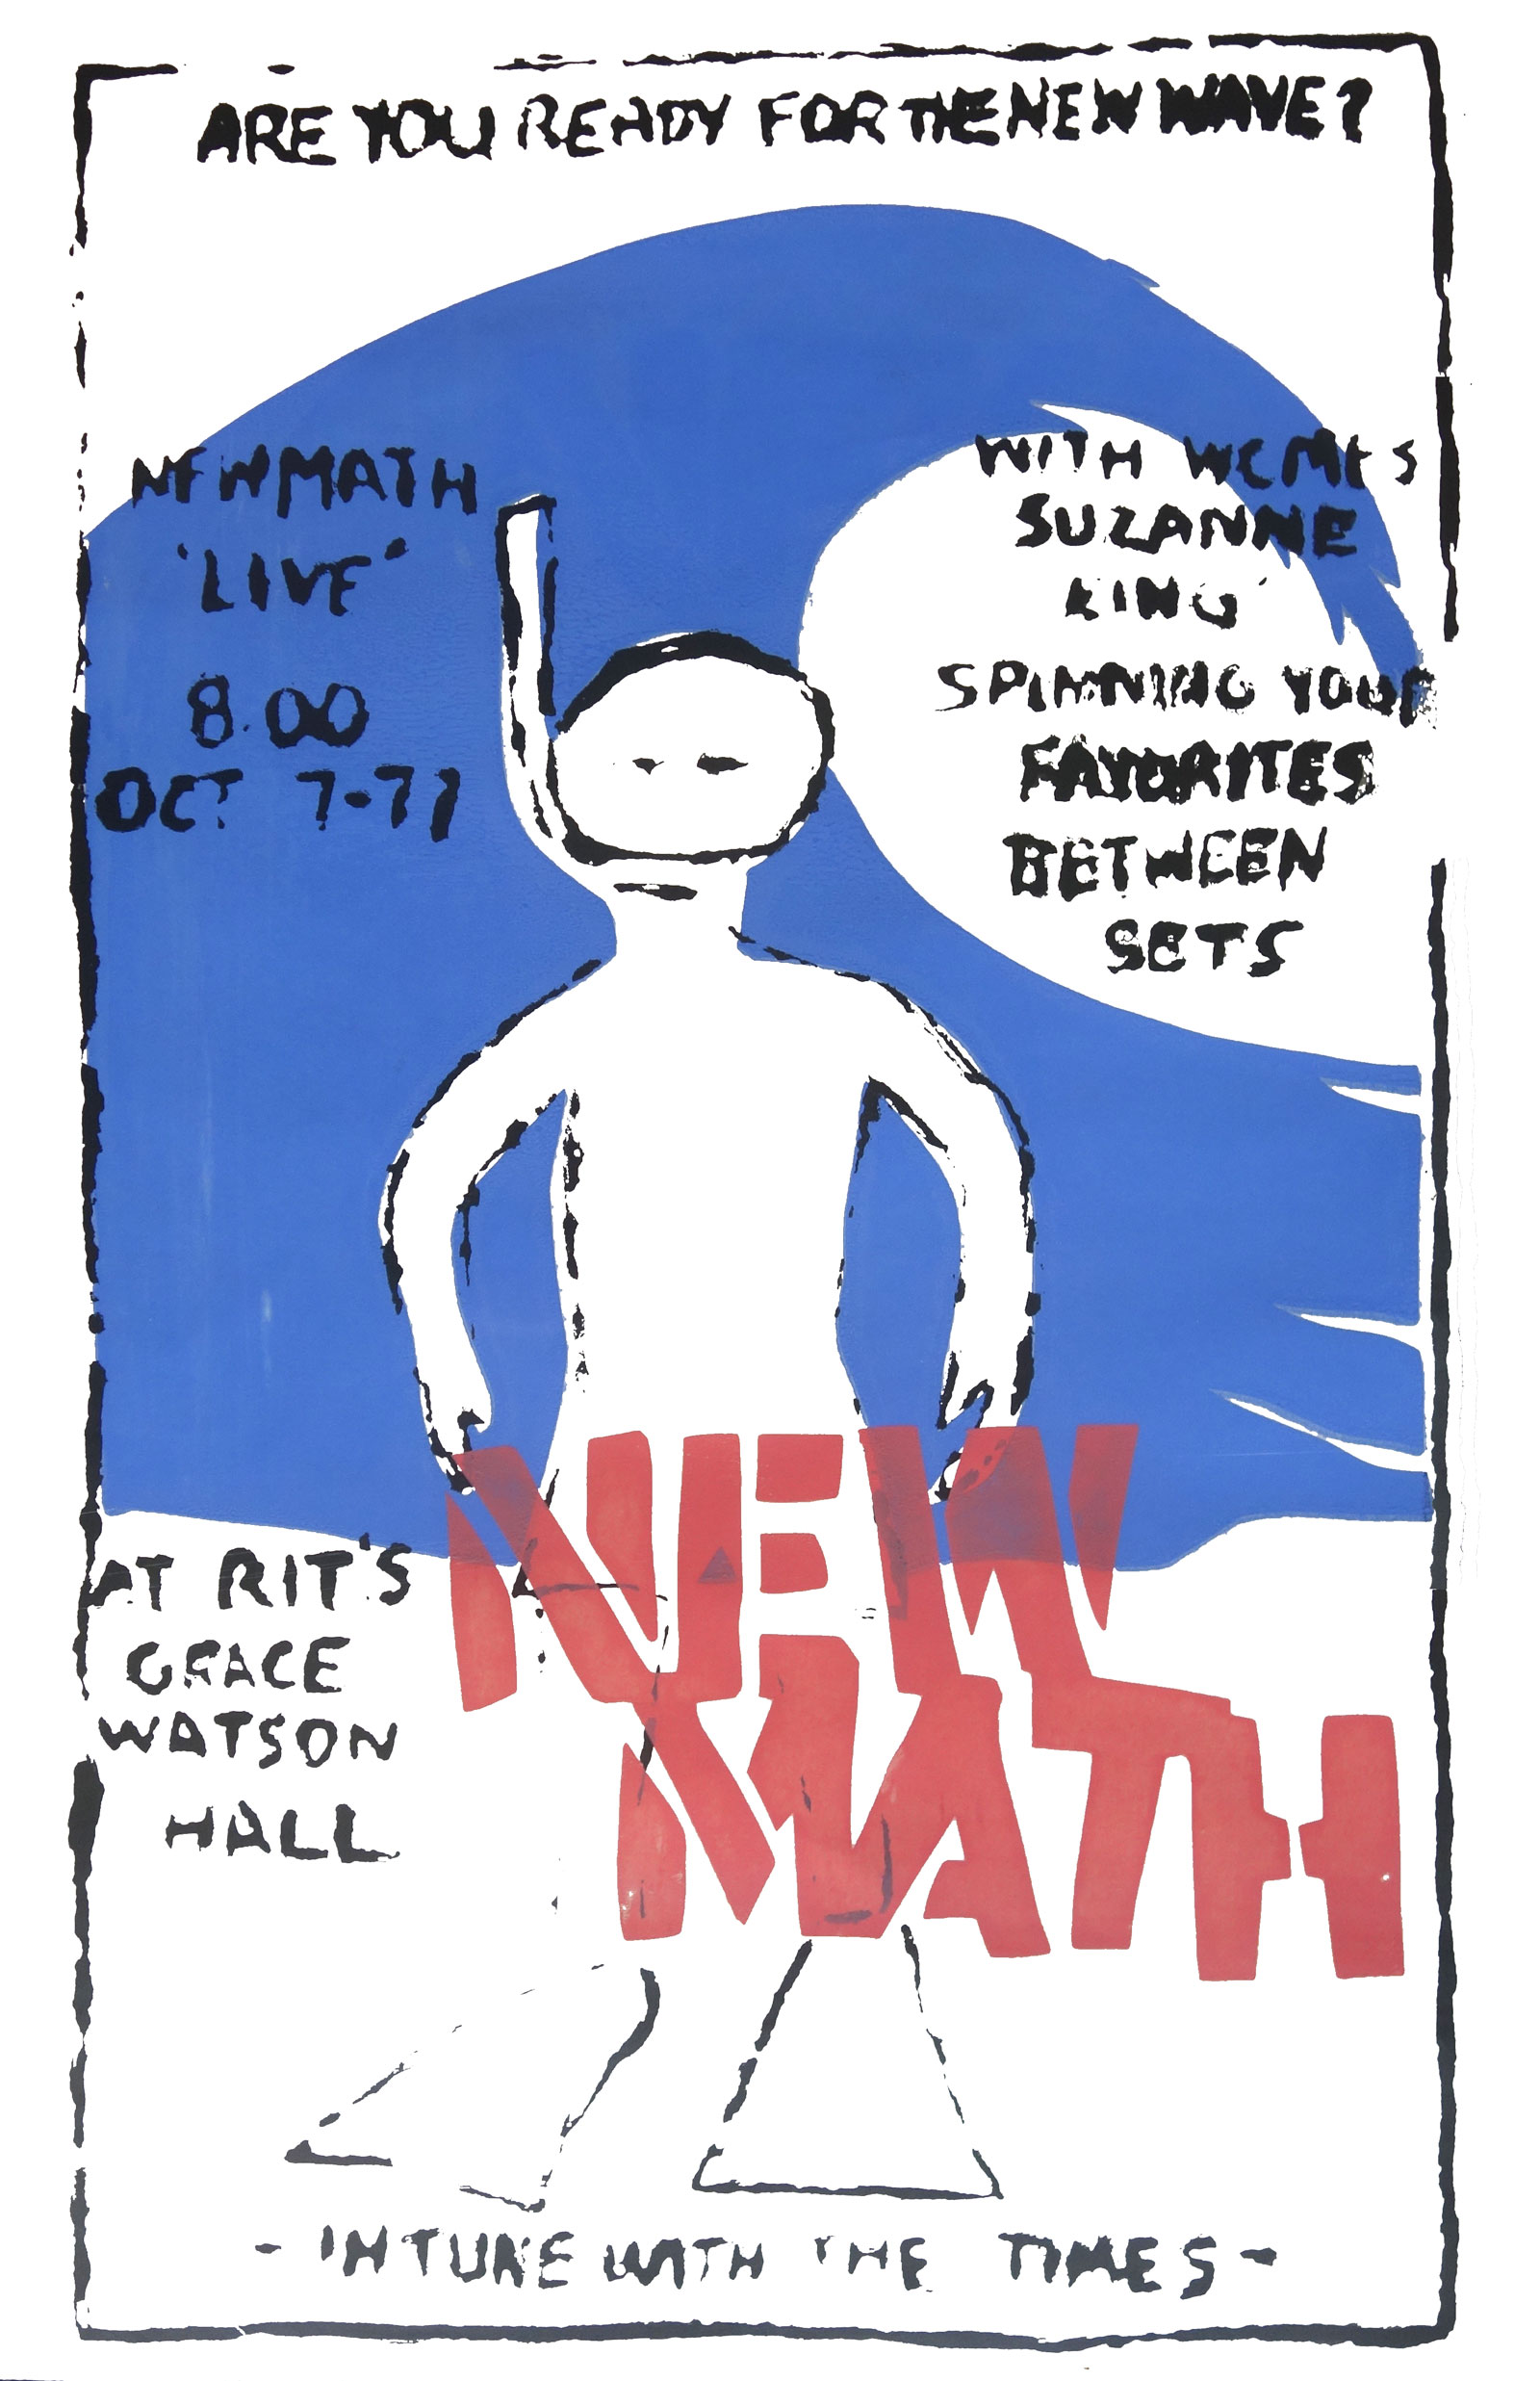 ARE YOU READY FOR THE NEW WAVE?
NEW MATH
'LIVE'
8.00
OCT 7-77
WITH WCMF'S
SUZANNE
KING
SPINNING YOUR
FAVORITES
BETWEEN
SETS
NEW
MATH
AT RIT'S
GRACE
WATSON
HALL
- IN TUNE WITH THE TIMES -